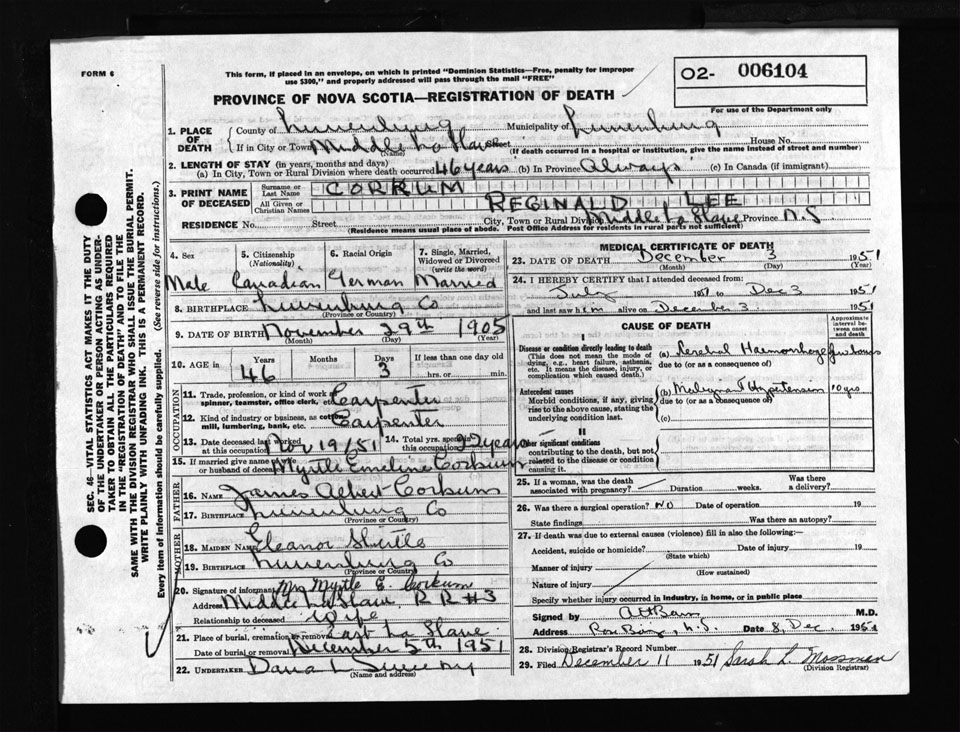 FORM 6
This form, if placed in an envelope, on which is printed "Dominion Statistics—Free, penalty for improper
use $300," and properly addressed will pass through the mail "FREE"
O2- 006104
For use of the Department only
PROVINCE OF NOVA SCOTIA—REGISTRATION OF DEATH
1. PLACE OF DEATH County of Lunenburg Municipality of Lunenburg
If in City or Town Middle LaHave Street House No.
(Name) (If death occurred in a hospital or institution, give the name instead of street and number)
2. LENGTH OF STAY (in years, months and days)
(a) In City, Town or Rural Division where death occurred 46 years (b) In Province Always (c) In Canada (if immigrant)
3. PRINT NAME OF DECEASED Surname or Last Name CORKUM
All Given or Christian Names REGINALD LEE
RESIDENCE No. Street City, Town or Rural Division Middle LaHave Province N.S
(Residence means usual place of abode. Post Office Address for residents in rural parts not sufficient)
4. Sex 5. Citizenship (Nationality) 6. Racial Origin 7. Single, Married, Widowed or Divorced (write the word)
Male Canadian German Married
8. BIRTHPLACE Lunenburg Co
(Province or Country)
9. DATE OF BIRTH November 29th 1905
(Month) (Day) (Year)
10. AGE Years Months Days If less than one day old
46 3 hrs. or min.
OCCUPATION
11. Trade, profession, or kind of work as spinner, teamster, office clerk, etc. Carpenter
12. Kind of industry or business, as cotton mill, lumbering, bank, etc. Carpenter
13. Date deceased last worked at this occupation Nov 19/51 14. Total yrs. spent in this occupation 22 years
15. If married give name of wife or husband of deceased Myrtle Emeline Corkum
FATHER
16. NAME James Albert Corkum
17. BIRTHPLACE Lunenburg Co
(Province or Country)
MOTHER
18. MAIDEN NAME Eleanor
19. BIRTHPLACE Lunenburg Co
(Province or Country)
20. Signature of informant Mrs Myrtle E. Corkum
Address Middle LaHave R R #3
Relationship to deceased Wife
21. Place of burial, cremation or removal East LaHave
Date of burial or removal December 5th 1951
22. UNDERTAKER Dana L Sweeny
(Name and address)
MEDICAL CERTIFICATE OF DEATH
23. DATE OF DEATH December 3 1951
(Month) (Day) (Year)
24. I HEREBY CERTIFY that I attended deceased from:
July 1951 to Dec 3 1951
and last saw him alive on December 3 1951
CAUSE OF DEATH
Approximate interval between onset and death
I
Disease or condition directly leading to death
(This does not mean the mode of dying, e.g., heart failure, asthenia, etc. It means the disease, injury, or complication which caused death.)
(a) Cerebral Haemorrhage few hours
due to (or as a consequence of)
Antecedent causes
Morbid conditions, if any, giving rise to the above cause, stating the underlying condition last.
(b) Malignant Hypertension 10 yrs
due to (or as a consequence of)
(c)
II
Other significant conditions
contributing to the death, but not related to the disease or condition causing it.
25. If a woman, was the death associated with pregnancy? Duration weeks. Was there a delivery?
26. Was there a surgical operation? NO Date of operation 19
State findings Was there an autopsy?
27. If death was due to external causes (violence) fill in also the following:—
Accident, suicide or homicide? Date of injury 19
(State which)
Manner of injury
(How sustained)
Nature of injury
Specify whether injury occurred in industry, in home, or in public place
Signed by M.D.
Address Rose Bay, N.S. Date 8, Dec. 1951
28. Division Registrar's Record Number
29. Filed December 11 1951 Sarah L. Mossman
(Division Registrar)
SEC. 46—VITAL STATISTICS ACT MAKES IT THE DUTY
OF THE UNDERTAKER OR PERSON ACTING AS UNDER-
TAKER TO OBTAIN ALL THE PARTICULARS REQUIRED
IN THE "REGISTRATION OF DEATH" AND TO FILE THE
SAME WITH THE DIVISION REGISTRAR WHO SHALL ISSUE THE BURIAL PERMIT.
WRITE PLAINLY WITH UNFADING INK. THIS IS A PERMANENT RECORD.
Every item of information should be carefully supplied. (See reverse side for instructions.)